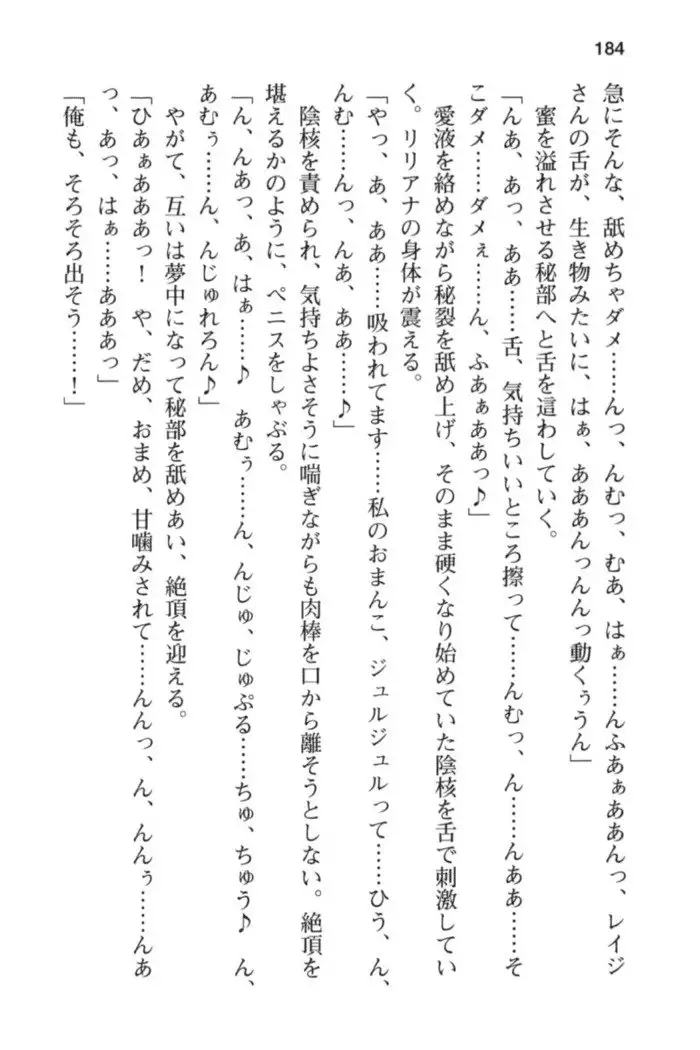 184
急にそんな、舐めちゃダメ……んっ、んむっ、むあ、はぁ……んふあぁああんっ、レイジ
さんの舌が、生き物みたいに、はぁ、あああんっんんっ動くぅうん」
蜜を溢れさせる秘部へと舌を這わしていく。
「んあ、あっ、ああ……舌、気持ちいいところ擦って……んむっ、ん……んああ……そ
こダメ……ダメぇ……ん、ふあぁああっ♪」
愛液を絡めながら秘裂を舐め上げ、そのまま硬くなり始めていた陰核を舌で刺激してい
く。リリアナの身体が震える。
「やっ、あ、ああ……吸われてます……私のおまんこ、ジュルジュルって……ひう、ん、
んむ……んっ、んあ、ああ……♪」
陰核を責められ、気持ちよさそうに喘ぎながらも肉棒を口から離そうとしない。絶頂を
堪えるかのように、ペニスをしゃぶる。
「ん、んあっ、あ、はぁ……♪　あむぅ……ん、んじゅ、じゅぷる……ちゅ、ちゅう♪　ん、
あむぅ……ん、んじゅれろん♪」
やがて、互いは夢中になって秘部を舐めあい、絶頂を迎える。
「ひあぁあああっ！　や、だめ、おまめ、甘噛みされて……んんっ、ん、んんぅ……んあ
っ、あっ、はぁ……あああっ」
「俺も、そろそろ出そう……！」